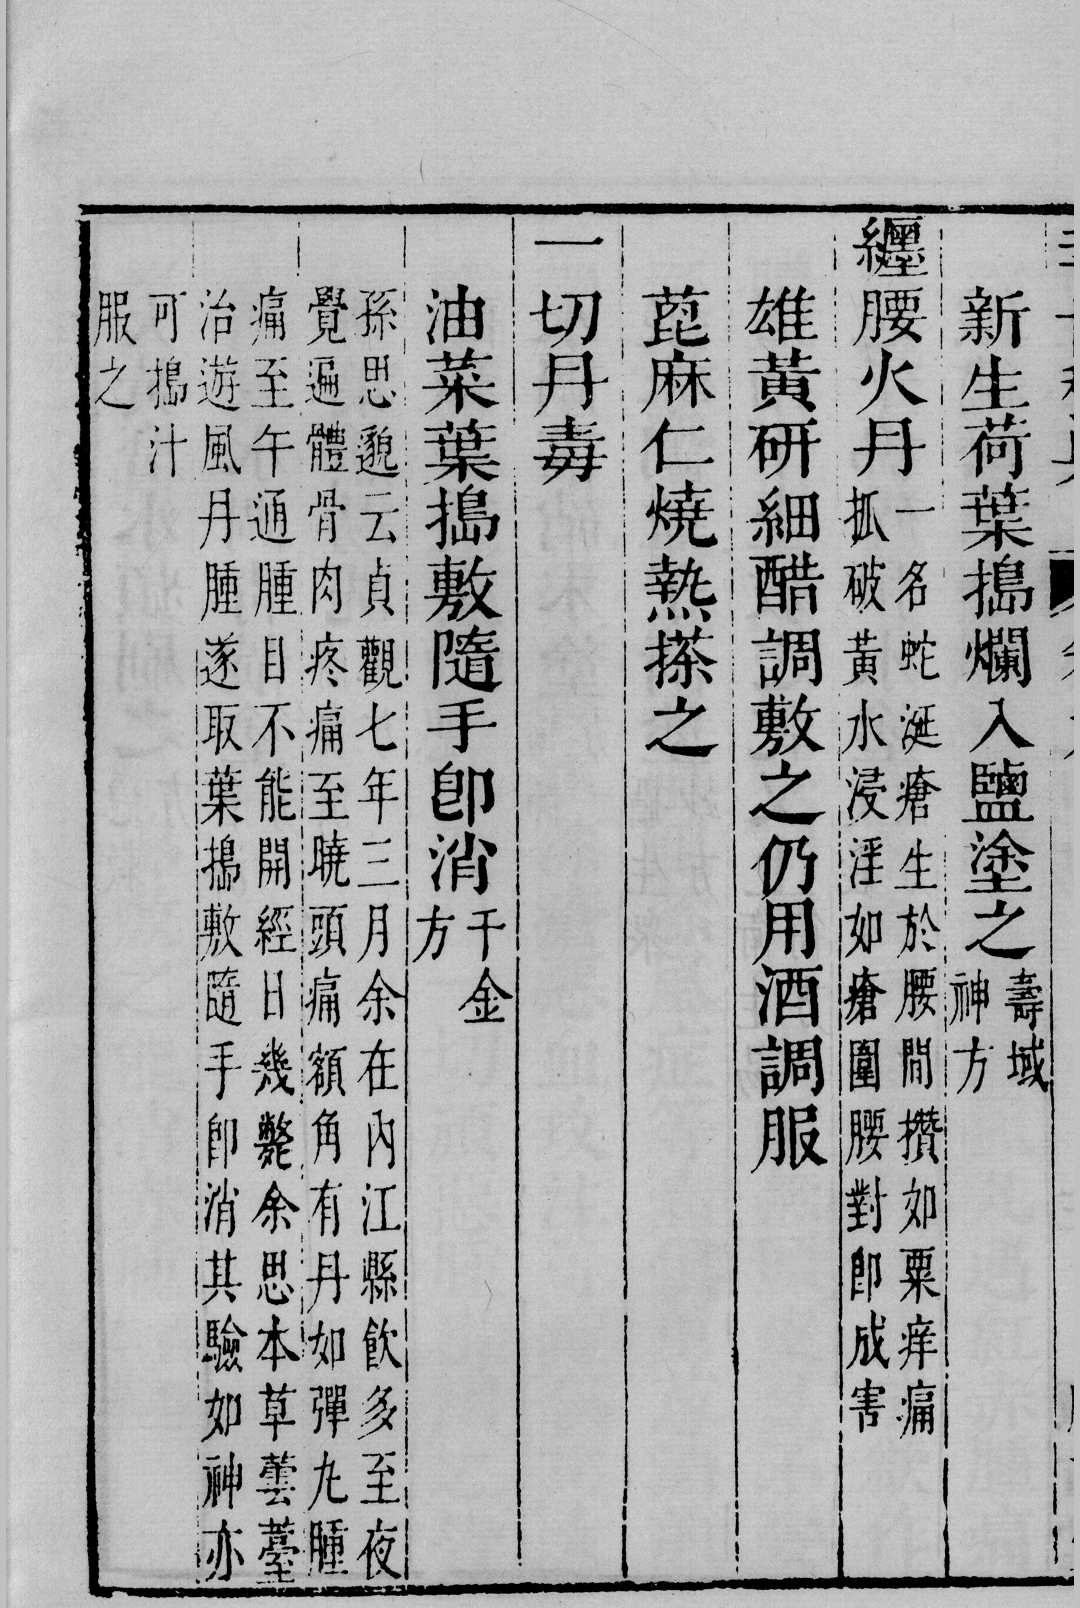 新生荷葉搗爛入鹽塗之壽域神方
纏腰火丹一名蛇涎瘡生於腰間攢如粟痒痛抓破黃水浸淫如瘡圍腰對卽成害
雄黃研細醋調敷之仍用酒調服
蓖麻仁燒熱搽之
一切丹毒
油菜葉搗敷隨手卽消千金方
孫思邈云貞觀七年三月余在內江縣飲多至夜
覺遍體骨肉疼痛至曉頭痛額角有丹如彈丸腫
痛至午通腫目不能開經日幾斃余思本草蕓薹
治遊風丹腫遂取葉搗敷隨手卽消其驗如神亦
可搗汁
服之